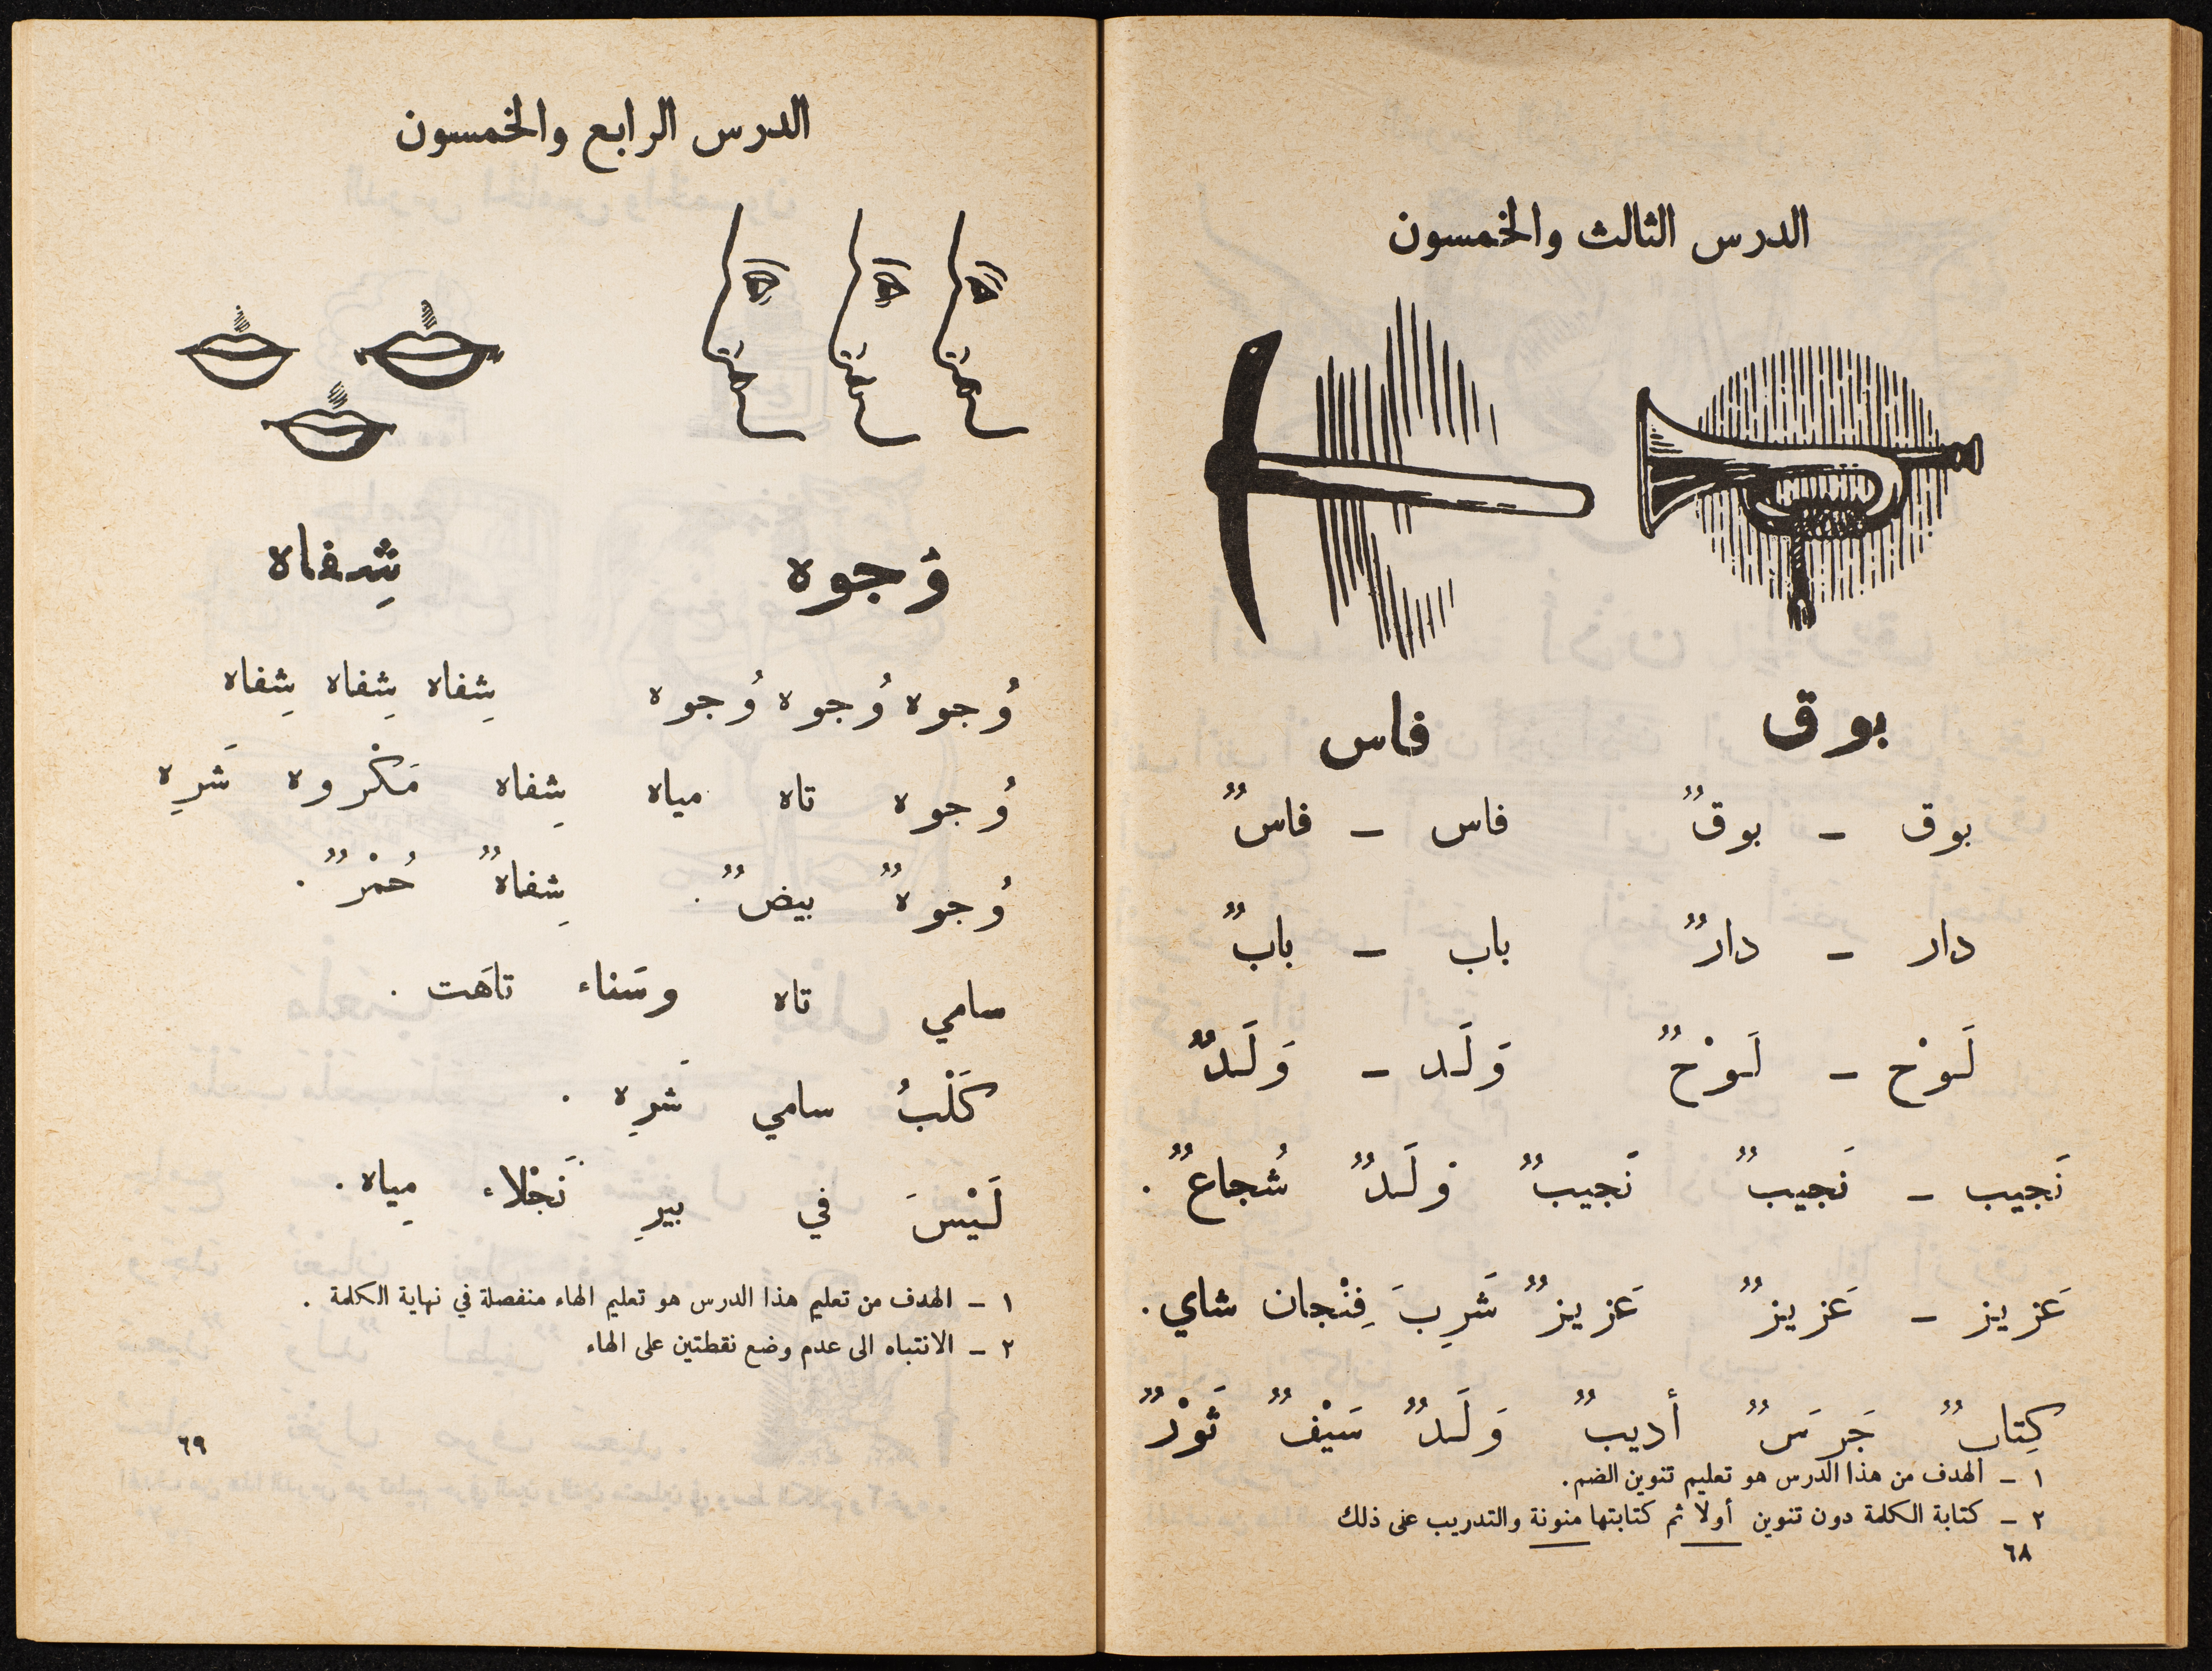 الدرس الثالث والخمسون
بوق فاس
بوق – بوقٌ فاس – فاسٌ
دار – دارٌ باب – بابٌ
لَوْح – لَوْحٌ وَلَد – وَلَدٌ
نَجيب – نَجيبٌ نَجيبٌ وَلَدٌ شُجاعٌ .
عَزيز – عَزيزٌ عَزيزٌ شَرِبَ فِنْجان شاي .
كِتابٌ جَرَسٌ أديبٌ وَلَدٌ سَيْفٌ ثَوْرٌ
١ – الهدف من هذا الدرس هو تعليم تنوين الضم .
٢ – كتابة الكلمة دون تنوين أولا ثم كتابتها منونة والتدريب على ذلك
٦٨
الدرس الرابع والخمسون
وُجوه شِفاه
وُجوه وُجوه وُجوه شِفاه شِفاه شِفاه
وُجوه تاه مياه شِفاه مَكْروه شَرِه
وُجوهٌ بيضٌ . شِفاهٌ حُمْرٌ .
سامي تاه وسَناء تاهَت .
كَلْبُ سامي شَرِه .
لَيْسَ في بيرِ نَجْلاء مِياه .
١ – الهدف من تعليم هذا الدرس هو تعليم الهاء منفصلة في نهاية الكلمة .
٢ – الانتباه الى عدم وضع نقطتين على الهاء
٦٩